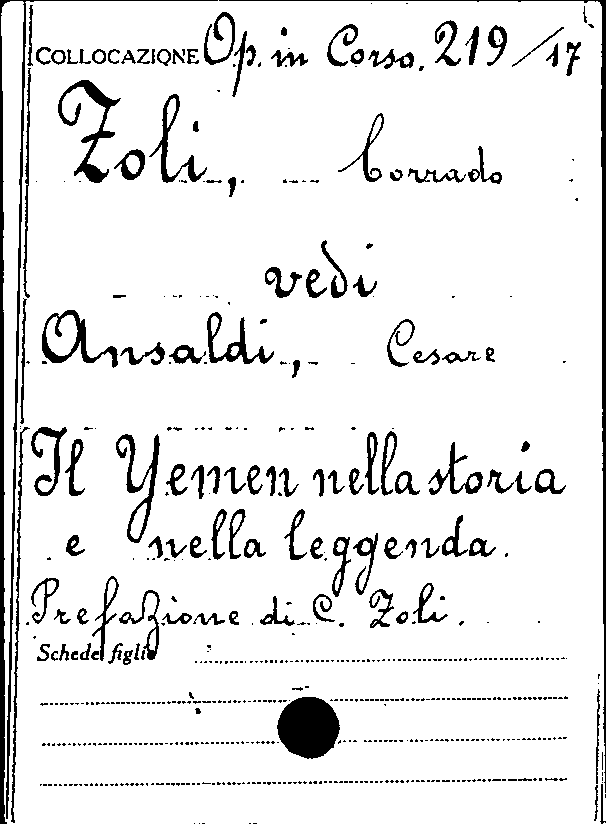 COLLOCAZIONE Op. in Corso. 219/17
Zoli, Corrado
vedi
Ansaldi, Cesare
Il Yemen nella storia
e nella leggenda.
Prefazione di C. Zoli.
Schede figlie